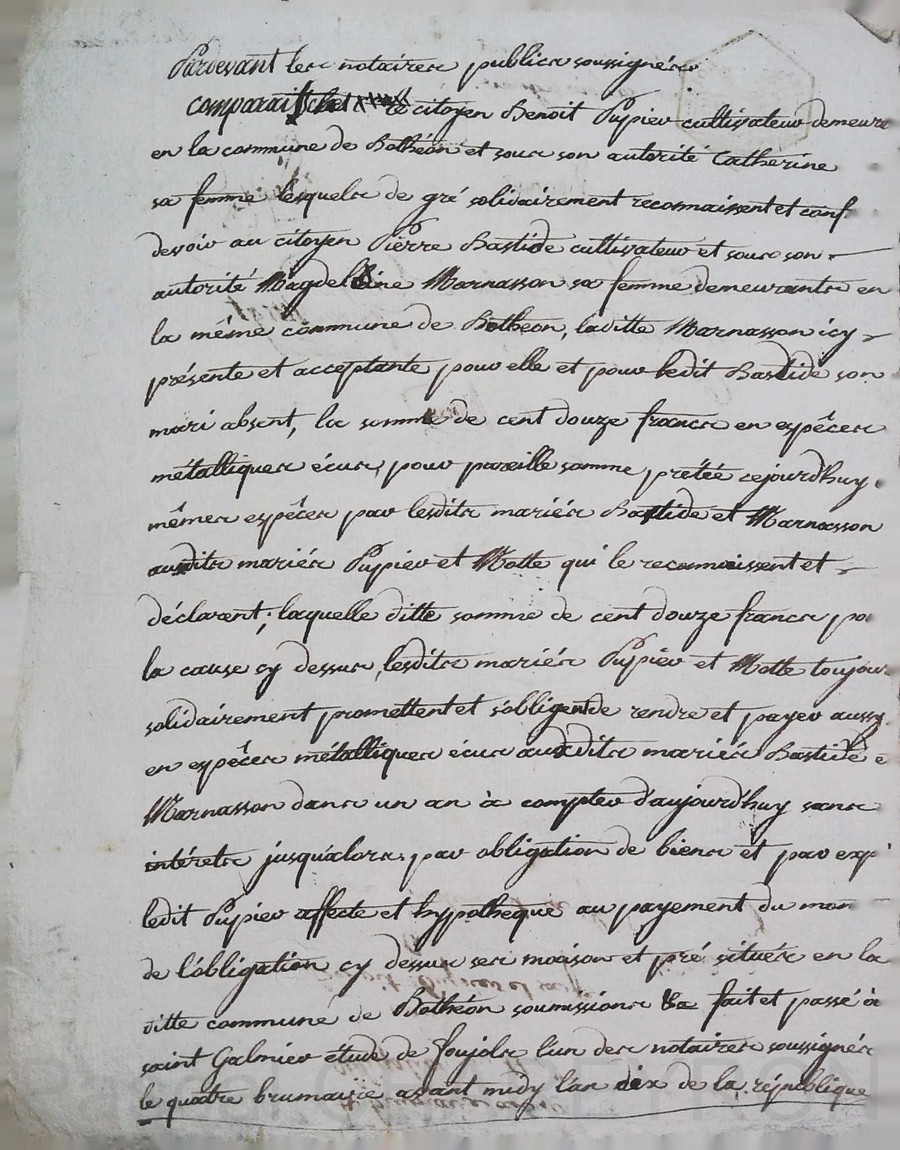 Pardevant les notaires publics soussignés
comparait le citoyen Benoit Pupier cultivateur demeura
en la commune de Bothéon et sous son autorité Catherine
sa femme lesquels de gré solidairement reconnaissent et conf
devoir au citoyen Pierre Bastide cultivateur et sous son
autorité Magdeleine Marnasson sa femme demeurants en
la même commune de Botheon, laditte Marnasson icy
présente et acceptante pour elle et pour ledit Bastide son
mari absent, la somme de cent douze francs en espêces
métalliques écus, pour pareille somme prêtée cejourd'huy
mêmes espêces par lesdits mariés Bastide et Marnasson
auxdits mariés Pupier et Motte qui le reconnaissent et
déclarent; laquelle ditte somme de cent douze francs po
la cause cy dessus, lesdits mariés Pupier et Motte toujour
solidairement promettent et s'obligent de rendre et payer aussy
en espêces métalliques écus auxdits mariés Bastide e
Marnasson dans un an à compter d'aujourd'huy sans
intérets jusqu'alors, par obligation de biens et par exp
ledit Pupier affecte et hypotheque au payement du mon
de l'obligation cy dessus ses maison et pré situés en la
ditte commune de Bothéon soumissions &a fait et passé à
saint Galmier étude de Joujols l'un des notaires soussignés
le quatre brumaire avant midy l'an dix de la république